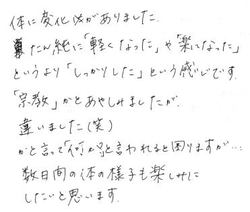 体に変化がありました
たん純に「軽くなった」や「楽になった」
というより「しっかりした」という感じです。
「宗教」かとあやしみましたが、
違いました(笑)
かと言って「何か?」と言われると困りますが…
数日間の体の様子も楽しみに
したいと思います。